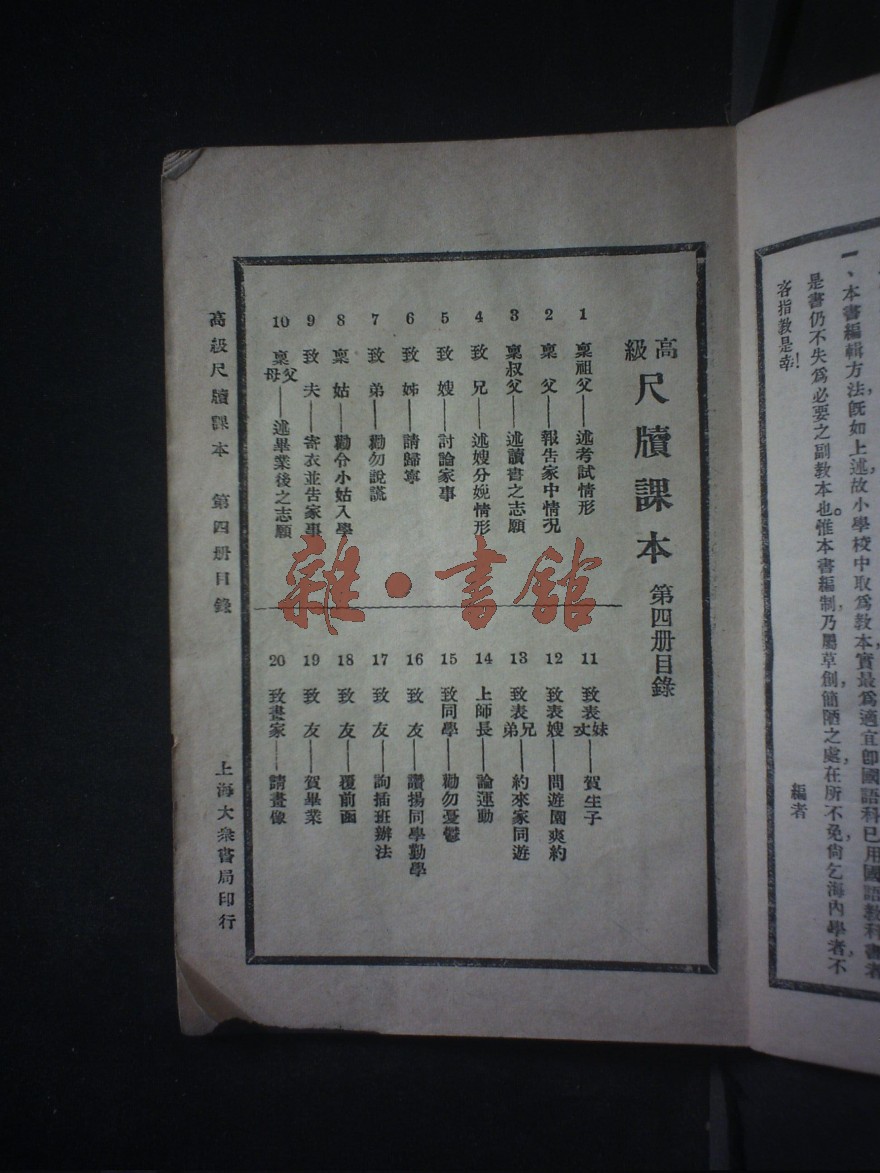 一、本書編輯方法既如上述，故小學校中取爲教本，實最爲適宜，卽國語科已用國語教科書者，
是書仍不失爲必要之副教本也。惟本書編制，乃屬草創，簡陋之處，在所不免，尙乞海內學者，不
吝指教是幸！
編者
高級尺牘課本 第四册目錄
1 稟祖父——述考試情形
2 稟 父——報告家中情况
3 稟叔父——述讀書之志願
4 致 兄——述嫂分娩情形
5 致 嫂——討論家事
6 致 姊——請歸寧
7 致 弟——勸勿說謊
8 稟 姑——勸令小姑入學
9 致 夫——寄衣並告家事
10 稟父母——述畢業後之志願
11 致表妹丈——賀生子
12 致表嫂——問遊園爽約
13 致表兄弟——約來家同遊
14 上師長——論運動
15 致同學——勸勿憂鬱
16 致 友——讚揚同學勤學
17 致 友——詢插班辦法
18 致 友——覆前函
19 致 友——賀畢業
20 致畫家——請畫像
高級尺牘課本 第四册目錄
上海大衆書局印行
雜·書館